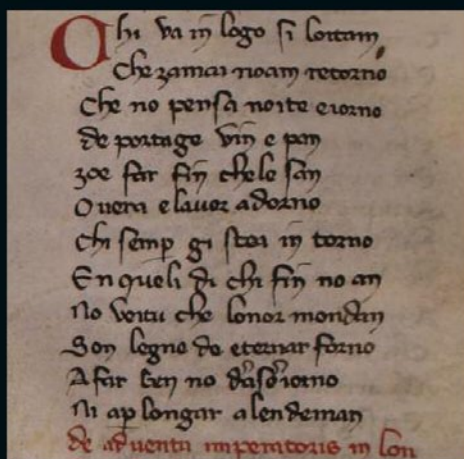 Chi va in logo si loitam
Che zamai noam retorno
Che no pensa noite e iorno
de portage vin e pan
zoe far fin che le san
Overa e lavor adorno
Chi semp gi stea in torno
En queli di chi fin no an
No veitu che lonor mondan
Son legne de eternar forno
A far ben no dar soiorno
Ni ap longar a lendeman
de adventu imperatoris in lon